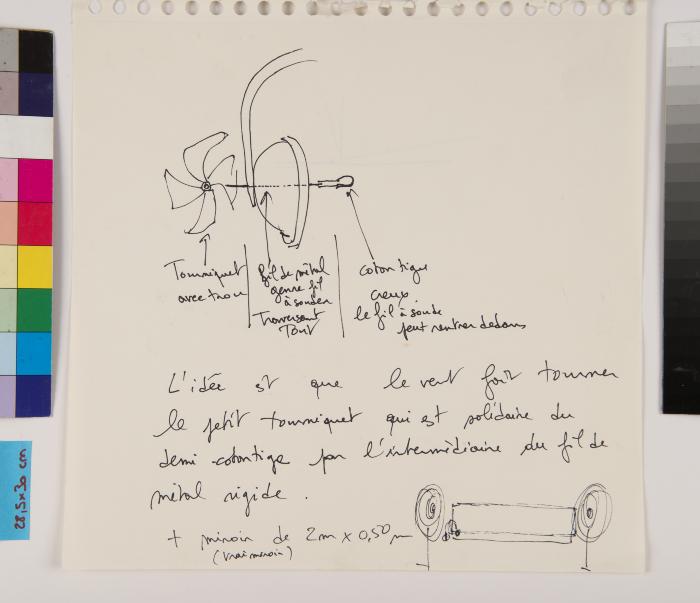 Tourniquet
avec trou
fil de métal
genre fil
à souder
Traversant
Tout
coton tige
creux
le fil à soude
peut rentrer dedans
L'idée est que le vent fait tourner
le petit tourniquet qui est solidaire du
demi-cotontige par l'intermédiaire du fil de
métal rigide.
+ miroir de 2m x 0,50 m
(vrai miroir)
28,5x30 cm